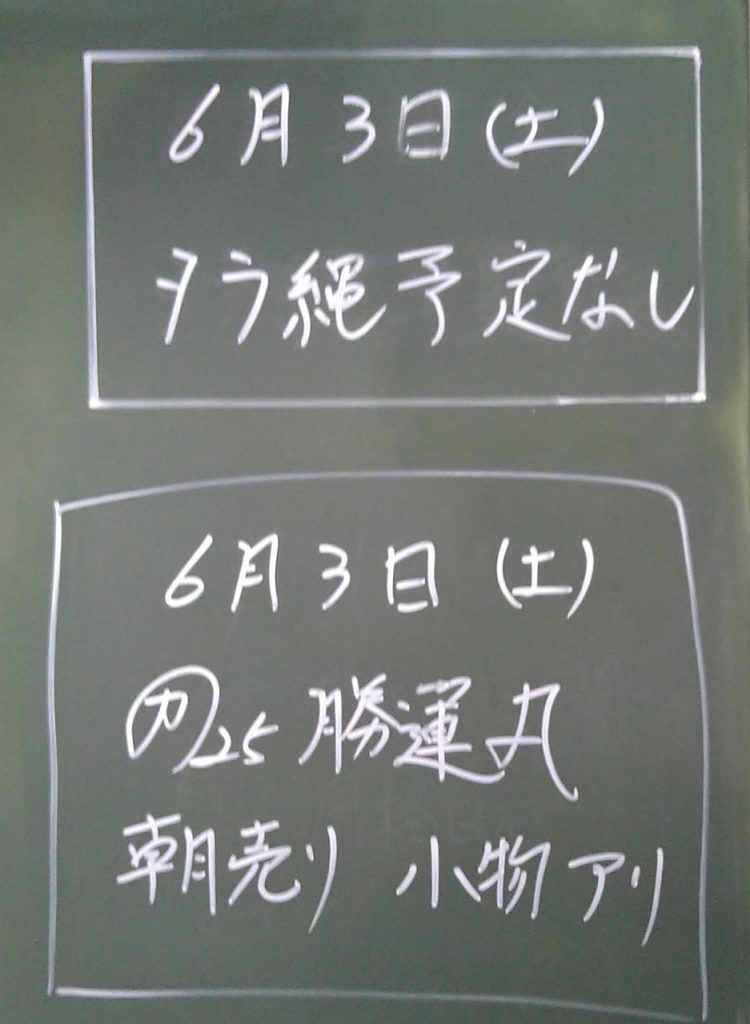 6月3日(土)
タラ縄予定なし
6月3日(土)
㋕25勝運丸
朝売り 小物アリ